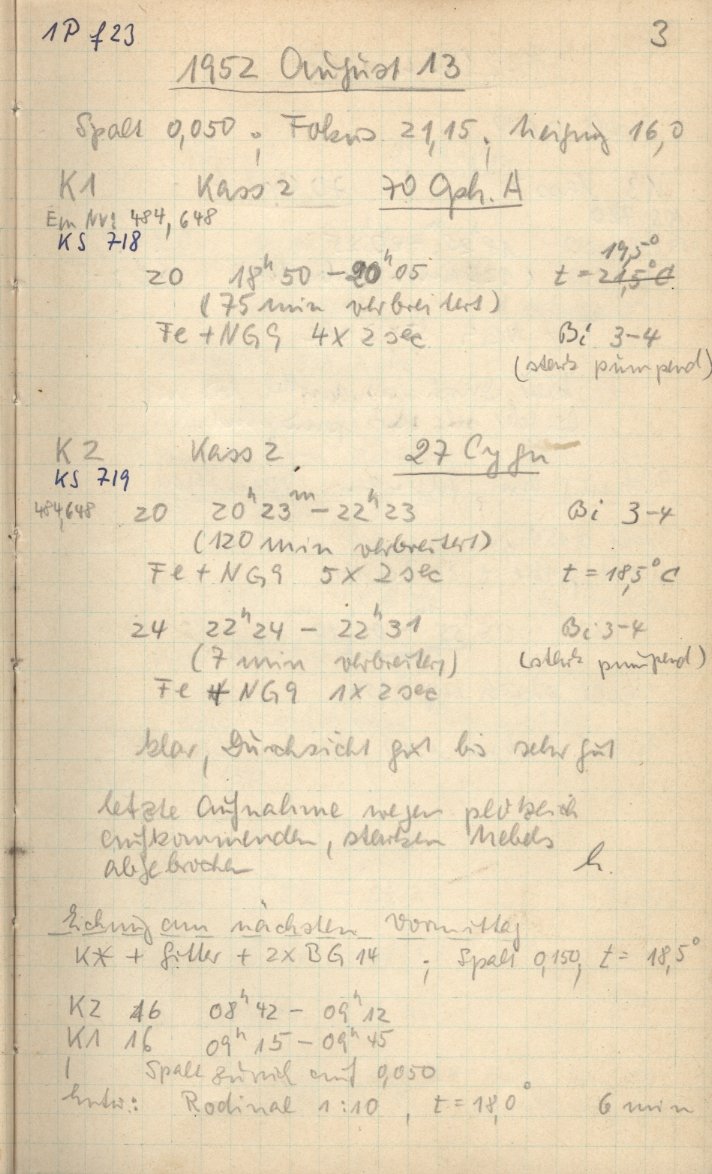 1P f23
3
1952 August 13
Spalt 0,050 ; Fokus 21,15 ; Neigung 16,0
K1 Kass 2 70 Oph. A
Em Nr! 484, 648
KS 718
19,5°
20 18ʰ50 – 20ʰ05 t = 21,5°C
(75 min verbreitert)
Fe + NG9 4x2sec Bi 3-4
(stark pumpend)
K2 Kass 2 27 Cygn
KS 719
484,648 20 20ʰ23ᵐ – 22ʰ23 Bi 3-4
(120 min verbreitert)
Fe + NG9 5x2sec t = 18,5°C
24 22ʰ24 – 22ʰ31 Bi 3-4
(7 min verbreitert) (stark pumpend)
Fe + NG9 1x2sec
klar, Durchsicht gut bis sehr gut
letzte Aufnahme wegen plötzlich
aufkommenden, starken Nebels
abgebrochen h.
Eichung am nächsten Vormittag
K* + Gitter + 2x BG 14 ; Spalt 0,150, t = 18,5°
K2 16 08ʰ42 – 09ʰ12
K1 16 09ʰ15 – 09ʰ45
Spalt zurück auf 0,050
Entw.: Rodinal 1:10, t = 18,0° 6 min